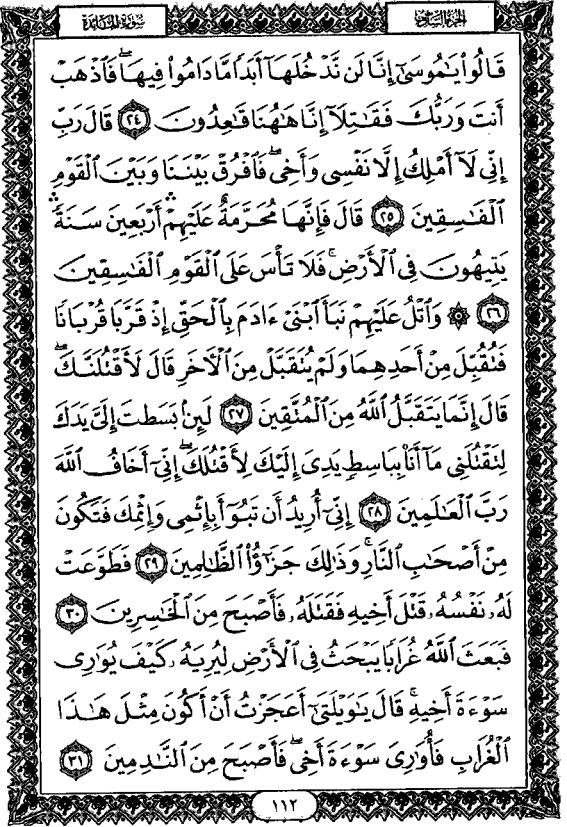 سورة المائدة
الجزء السادس
قَالُوا۟ يَـٰمُوسَىٰٓ إِنَّا لَن نَّدْخُلَهَآ أَبَدًا مَّا دَامُوا۟ فِيهَا ۖ فَٱذْهَبْ
أَنتَ وَرَبُّكَ فَقَـٰتِلَآ إِنَّا هَـٰهُنَا قَـٰعِدُونَ ٢٤ قَالَ رَبِّ
إِنِّى لَآ أَمْلِكُ إِلَّا نَفْسِى وَأَخِى ۖ فَٱفْرُقْ بَيْنَنَا وَبَيْنَ ٱلْقَوْمِ
ٱلْفَـٰسِقِينَ ٢٥ قَالَ فَإِنَّهَا مُحَرَّمَةٌ عَلَيْهِمْ ۛ أَرْبَعِينَ سَنَةً ۛ
يَتِيهُونَ فِى ٱلْأَرْضِ ۚ فَلَا تَأْسَ عَلَى ٱلْقَوْمِ ٱلْفَـٰسِقِينَ
٢٦ ۞ وَٱتْلُ عَلَيْهِمْ نَبَأَ ٱبْنَىْ ءَادَمَ بِٱلْحَقِّ إِذْ قَرَّبَا قُرْبَانًا
فَتُقُبِّلَ مِنْ أَحَدِهِمَا وَلَمْ يُتَقَبَّلْ مِنَ ٱلْـَٔاخَرِ قَالَ لَأَقْتُلَنَّكَ ۖ
قَالَ إِنَّمَا يَتَقَبَّلُ ٱللَّهُ مِنَ ٱلْمُتَّقِينَ ٢٧ لَئِنۢ بَسَطتَ إِلَىَّ يَدَكَ
لِتَقْتُلَنِى مَآ أَنَا۠ بِبَاسِطٍ يَدِىَ إِلَيْكَ لِأَقْتُلَكَ ۖ إِنِّىٓ أَخَافُ ٱللَّهَ
رَبَّ ٱلْعَـٰلَمِينَ ٢٨ إِنِّىٓ أُرِيدُ أَن تَبُوٓأَ بِإِثْمِى وَإِثْمِكَ فَتَكُونَ
مِنْ أَصْحَـٰبِ ٱلنَّارِ ۚ وَذَٰلِكَ جَزَٰٓؤُا۟ ٱلظَّـٰلِمِينَ ٢٩ فَطَوَّعَتْ
لَهُۥ نَفْسُهُۥ قَتْلَ أَخِيهِ فَقَتَلَهُۥ فَأَصْبَحَ مِنَ ٱلْخَـٰسِرِينَ ٣٠
فَبَعَثَ ٱللَّهُ غُرَابًا يَبْحَثُ فِى ٱلْأَرْضِ لِيُرِيَهُۥ كَيْفَ يُوَٰرِى
سَوْءَةَ أَخِيهِ ۚ قَالَ يَـٰوَيْلَتَىٰٓ أَعَجَزْتُ أَنْ أَكُونَ مِثْلَ هَـٰذَا
ٱلْغُرَابِ فَأُوَٰرِىَ سَوْءَةَ أَخِى ۖ فَأَصْبَحَ مِنَ ٱلنَّـٰدِمِينَ ٣١
١١٢